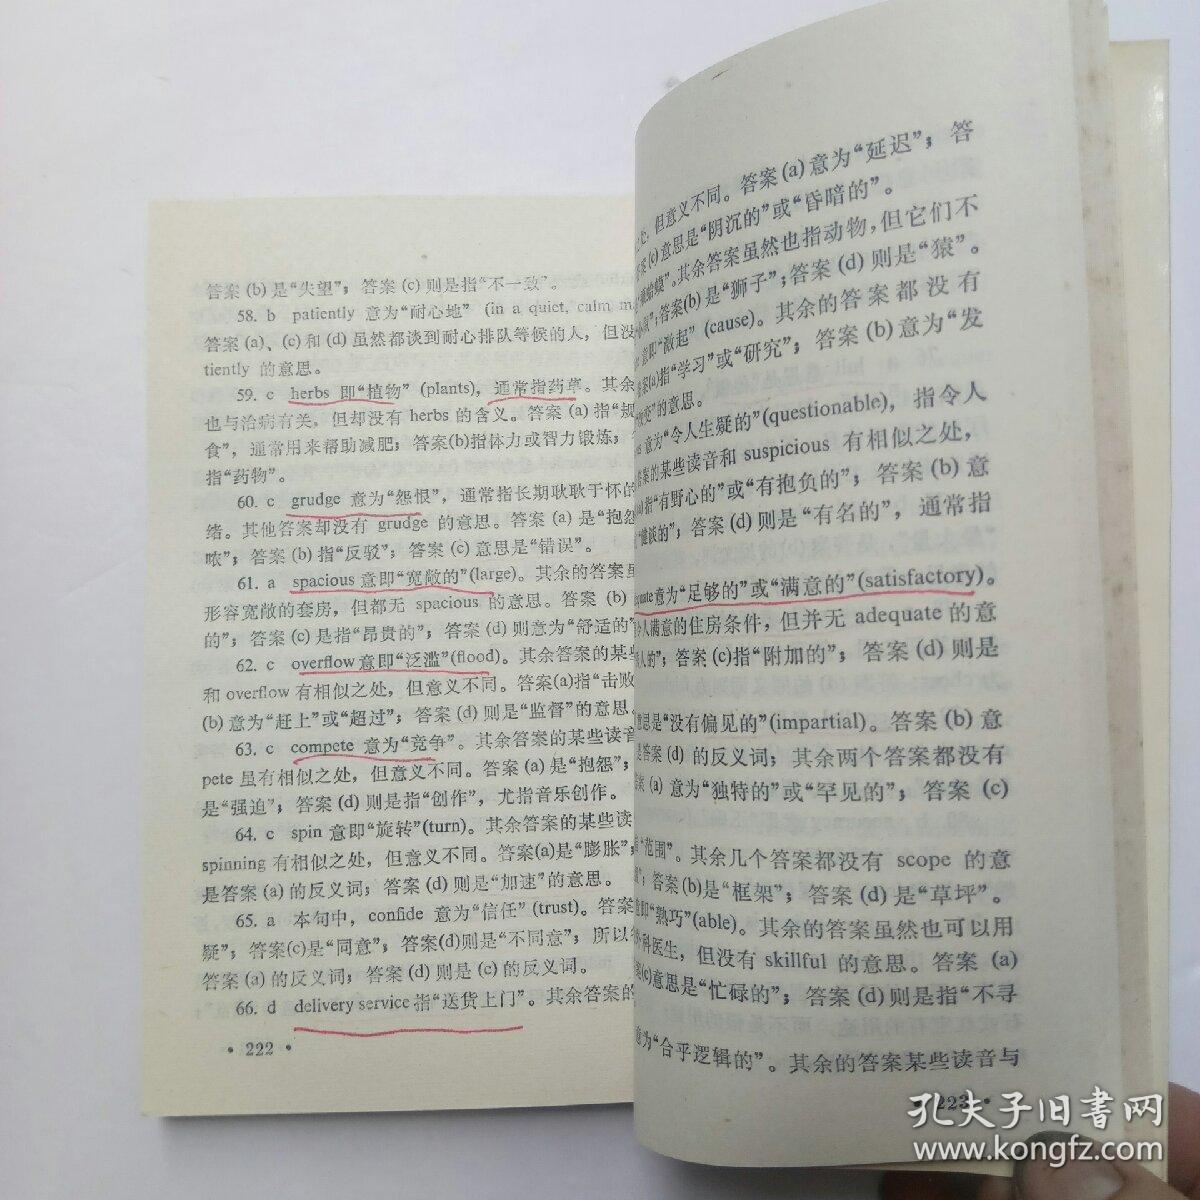 答案 (b) 是“失望”；答案 (c) 则是指“不一致”。
58. b patiently 意为“耐心地” (in a quiet, calm
答案 (a)、(c) 和 (d) 虽然都谈到耐心排队等候的人，但没
tiently 的意思。
59. c herbs 即“植物” (plants)，通常指药草。其余
也与治病有关，但却没有 herbs 的含义。答案 (a) 指“规
食”，通常用来帮助减肥；答案(b)指体力或智力锻炼；
指“药物”。
60. c grudge 意为“怨恨”，通常指长期耿耿于怀的
绪。其他答案却没有 grudge 的意思。答案 (a) 是“抱怨
哝”；答案 (b) 指“反驳”；答案 (c) 意思是“错误”。
61. a spacious 意即“宽敞的”(large)。其余的答案虽
形容宽敞的套房，但都无 spacious 的意思。答案 (b)
的”；答案 (c) 是指“昂贵的”；答案 (d) 则意为“舒适的”
62. c overflow 意即“泛滥”(flood)。其余答案的某些
和 overflow 有相似之处，但意义不同。答案(a)指“击败
(b) 意为“赶上”或“超过”；答案 (d) 则是“监督”的意思。
63. c compete 意为“竞争”。其余答案的某些读音
pete 虽有相似之处，但意义不同。答案 (a) 是“抱怨”；
是“强迫”；答案 (d) 则是指“创作”，尤指音乐创作。
64. c spin 意即“旋转”(turn)。其余答案的某些读
spinning 有相似之处，但意义不同。答案(a)是“膨胀”；
是答案 (a) 的反义词；答案 (d) 则是“加速”的意思。
65. a 本句中，confide 意为“信任” (trust)。答案
疑”；答案(c)是“同意”；答案(d)则是“不同意”；所以
答案 (a) 的反义词；答案 (d) 则是 (c) 的反义词。
66. d delivery service 指“送货上门”。其余答案的
• 222 •
处，但意义不同。答案 (a) 意为“延迟”；答
案(c)意思是“阴沉的”或“昏暗的”。
蛤蟆”。其余答案虽然也指动物，但它们不
”；答案(b)是“狮子”；答案 (d) 则是“猿”。
意即“激起” (cause)。其余的答案都没有
(a)指“学习”或“研究”；答案 (b) 意为“发
改变”的意思。
意为“令人生疑的”(questionable)，指令人
答案的某些读音和 suspicious 有相似之处，
指“有野心的”或“有抱负的”；答案 (b) 意
“健谈的”；答案 (d) 则是“有名的”，通常指
意为“足够的”或“满意的”(satisfactory)。
令人满意的住房条件，但并无 adequate 的意
人的”；答案 (c)指“附加的”；答案 (d) 则是
意思是“没有偏见的”(impartial)。答案 (b) 意
是答案 (d) 的反义词；其余两个答案都没有
案 (a) 意为“独特的”或“罕见的”；答案 (c)
“范围”。其余几个答案都没有 scope 的意
；答案(b)是“框架”；答案 (d) 是“草坪”。
即“熟巧”(able)。其余的答案虽然也可以用
外科医生，但没有 skillful 的意思。答案 (a)
案(c)意思是“忙碌的”；答案 (d) 则是指“不寻
意为“合乎逻辑的”。其余的答案某些读音与
• 223 •
孔夫子旧书网
www.kongfz.com